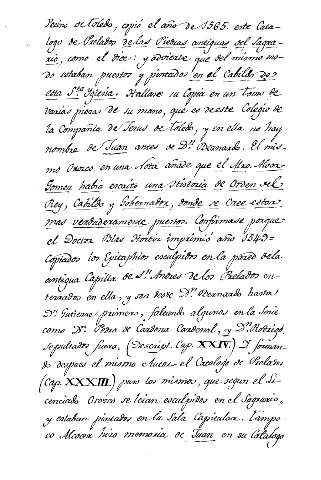 de Toledo, copió el año de 1565. este Cata-
logo de Prelados de las Piedras antiguas del Sagra-
rio, como el dice: y advierte que del mismo mo-
do estaban puestos y pintados en el Cabildo de
esta Sta Iglesia. Hallase su Copia en un Tomo de
varias piezas de su mano, que es de este Colegio de
la Compañia de Jesus de Toledo, y en ella no hay
nombre de Juan antes de Dn Bernardo. El mis-
mo Orozco en una Nota añade que el Mro. Alvar
Gomez habia escrito una Historia de Orden del
Rey, Cabildo y Gobernador, donde se Cree estar
mas verdaderamente puestos. Confirmase porque
el Doctor Blas Hortiz imprimió año 1549=
Copiados los Epitaphios esculpidos en la pared de la
antigua Capilla de Sn Andres de los Prelados en-
terrados en ella, y son desde Dn Bernardo hasta
Dn Gutierre primero, faltando algunos en la Serie
como Dn Pedro de Cardona Cardenal, y Dn Rodrigo,
sepultados fuera, (Descript. Cap. XXIV.) Y forman-
do despues el mismo Autor el Catalogo de Prelados
(Cap. XXXIII.) puso los mismos, que segun el Li-
cenciado Orozco se leian esculpidos en el Sagrario,
y estaban pintados en la Sala Capitular. Tampo-
co Alcocer hizo memoria de Juan en su Catalogo